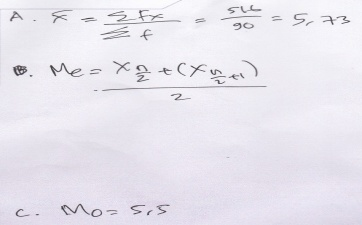 A. x̄ = Σfx / Σf = 516 / 90 = 5,73
B. Me = X n/2 + (X n/2 + 1) / 2
C. Mo = 5,5